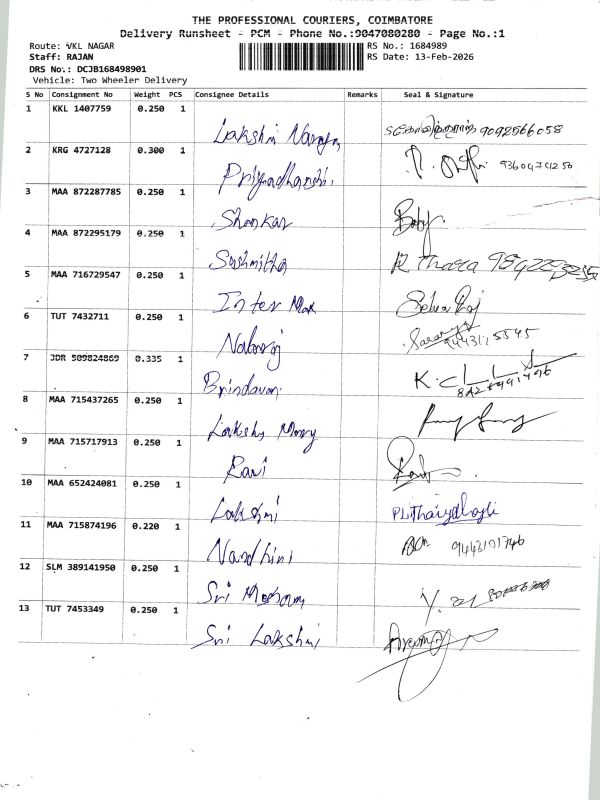 THE PROFESSIONAL COURIERS, COIMBATORE
Delivery Runsheet - PCM - Phone No.:9047080280 - Page No.:1
Route: VKL NAGAR
RS No.: 1684989
Staff: RAJAN
RS Date: 13-Feb-2026
DRS No.: DCJB168498901
Vehicle: Two Wheeler Delivery
S No Consignment No Weight PCS Consignee Details Remarks Seal & Signature
1 KKL 1407759 0.250 1 Lakshmi 9092566058
2 KRG 4727128 0.300 1 Priyadharshini
3 MAA 872287785 0.250 1 Shankar Baby
4 MAA 872295179 0.250 1 Sushmitha R Thara
5 MAA 716729547 0.250 1 Inter Selva
6 TUT 7432711 0.250 1 Nataraj
7 JDR 509824869 0.335 1 Brindavan K.C
8 MAA 715437265 0.250 1
9 MAA 715717913 0.250 1 Ravi
10 MAA 652424081 0.250 1 Lakshmi
11 MAA 715874196 0.220 1 Nandhini
12 SLM 389141950 0.250 1 Sri
13 TUT 7453349 0.250 1 Sri Lakshmi